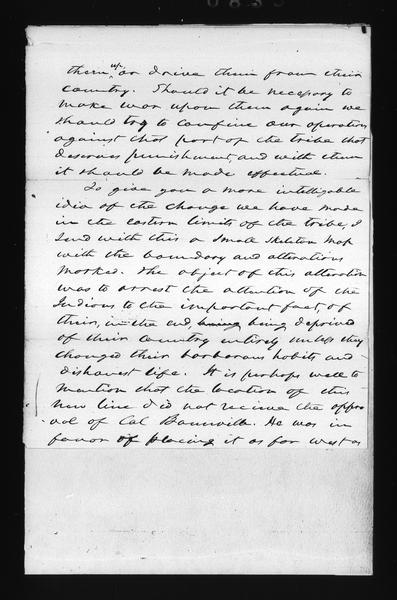 them up, or drive them from their
country. Should it be necessary to
make war upon them again we
should try to confine our operations
against that part of the tribe that
deserves punishment, and with them
it should be made effectual.
To give you a more intelligible
idia of the change we have made
in the eastern limits of the tribe, I
send with this a small skeleton map
with the boundary and alterations
marked. The object of this alteration
was to arrest the attention of the
Indians to the important fact, of
their, in the end, being being deprived
of their country entirely unless they
changed their barbarous habits and
dishonest life. It is perhaps well to
mention that the location of this
new line did not receive the appro-
val of Col Bonneville. He was in
favor of placing it as far west as